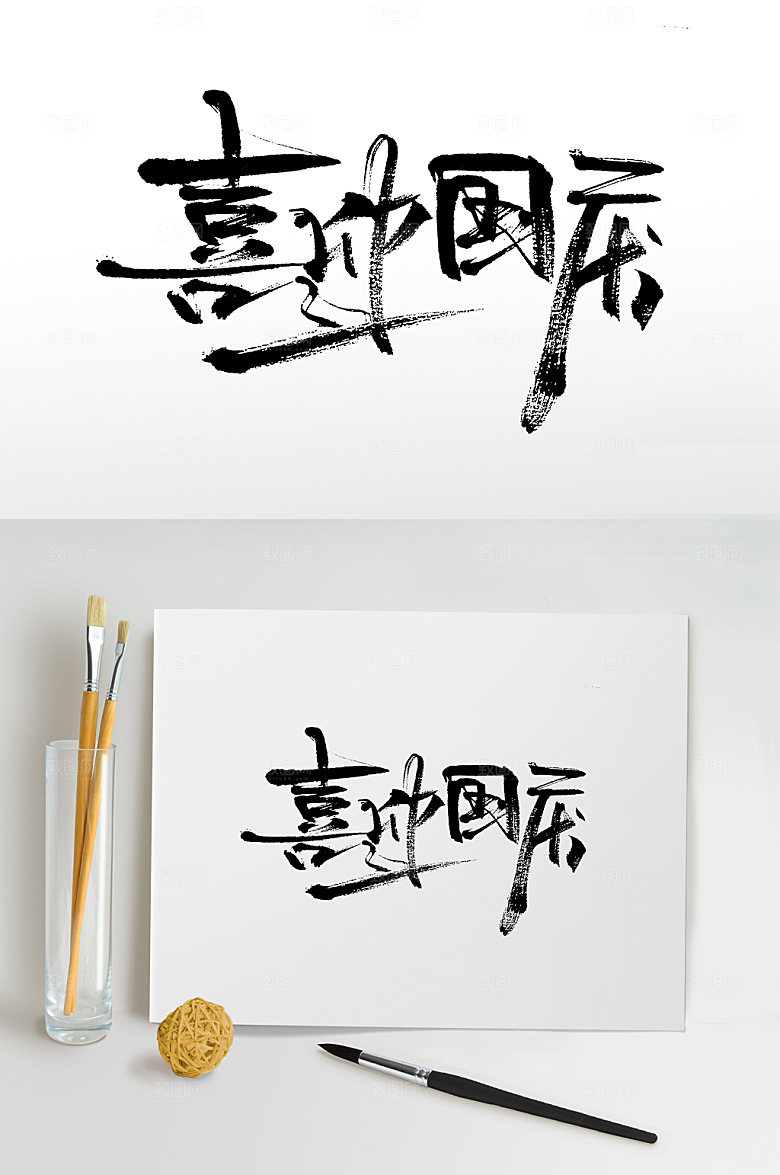 喜迎国庆
喜迎国庆